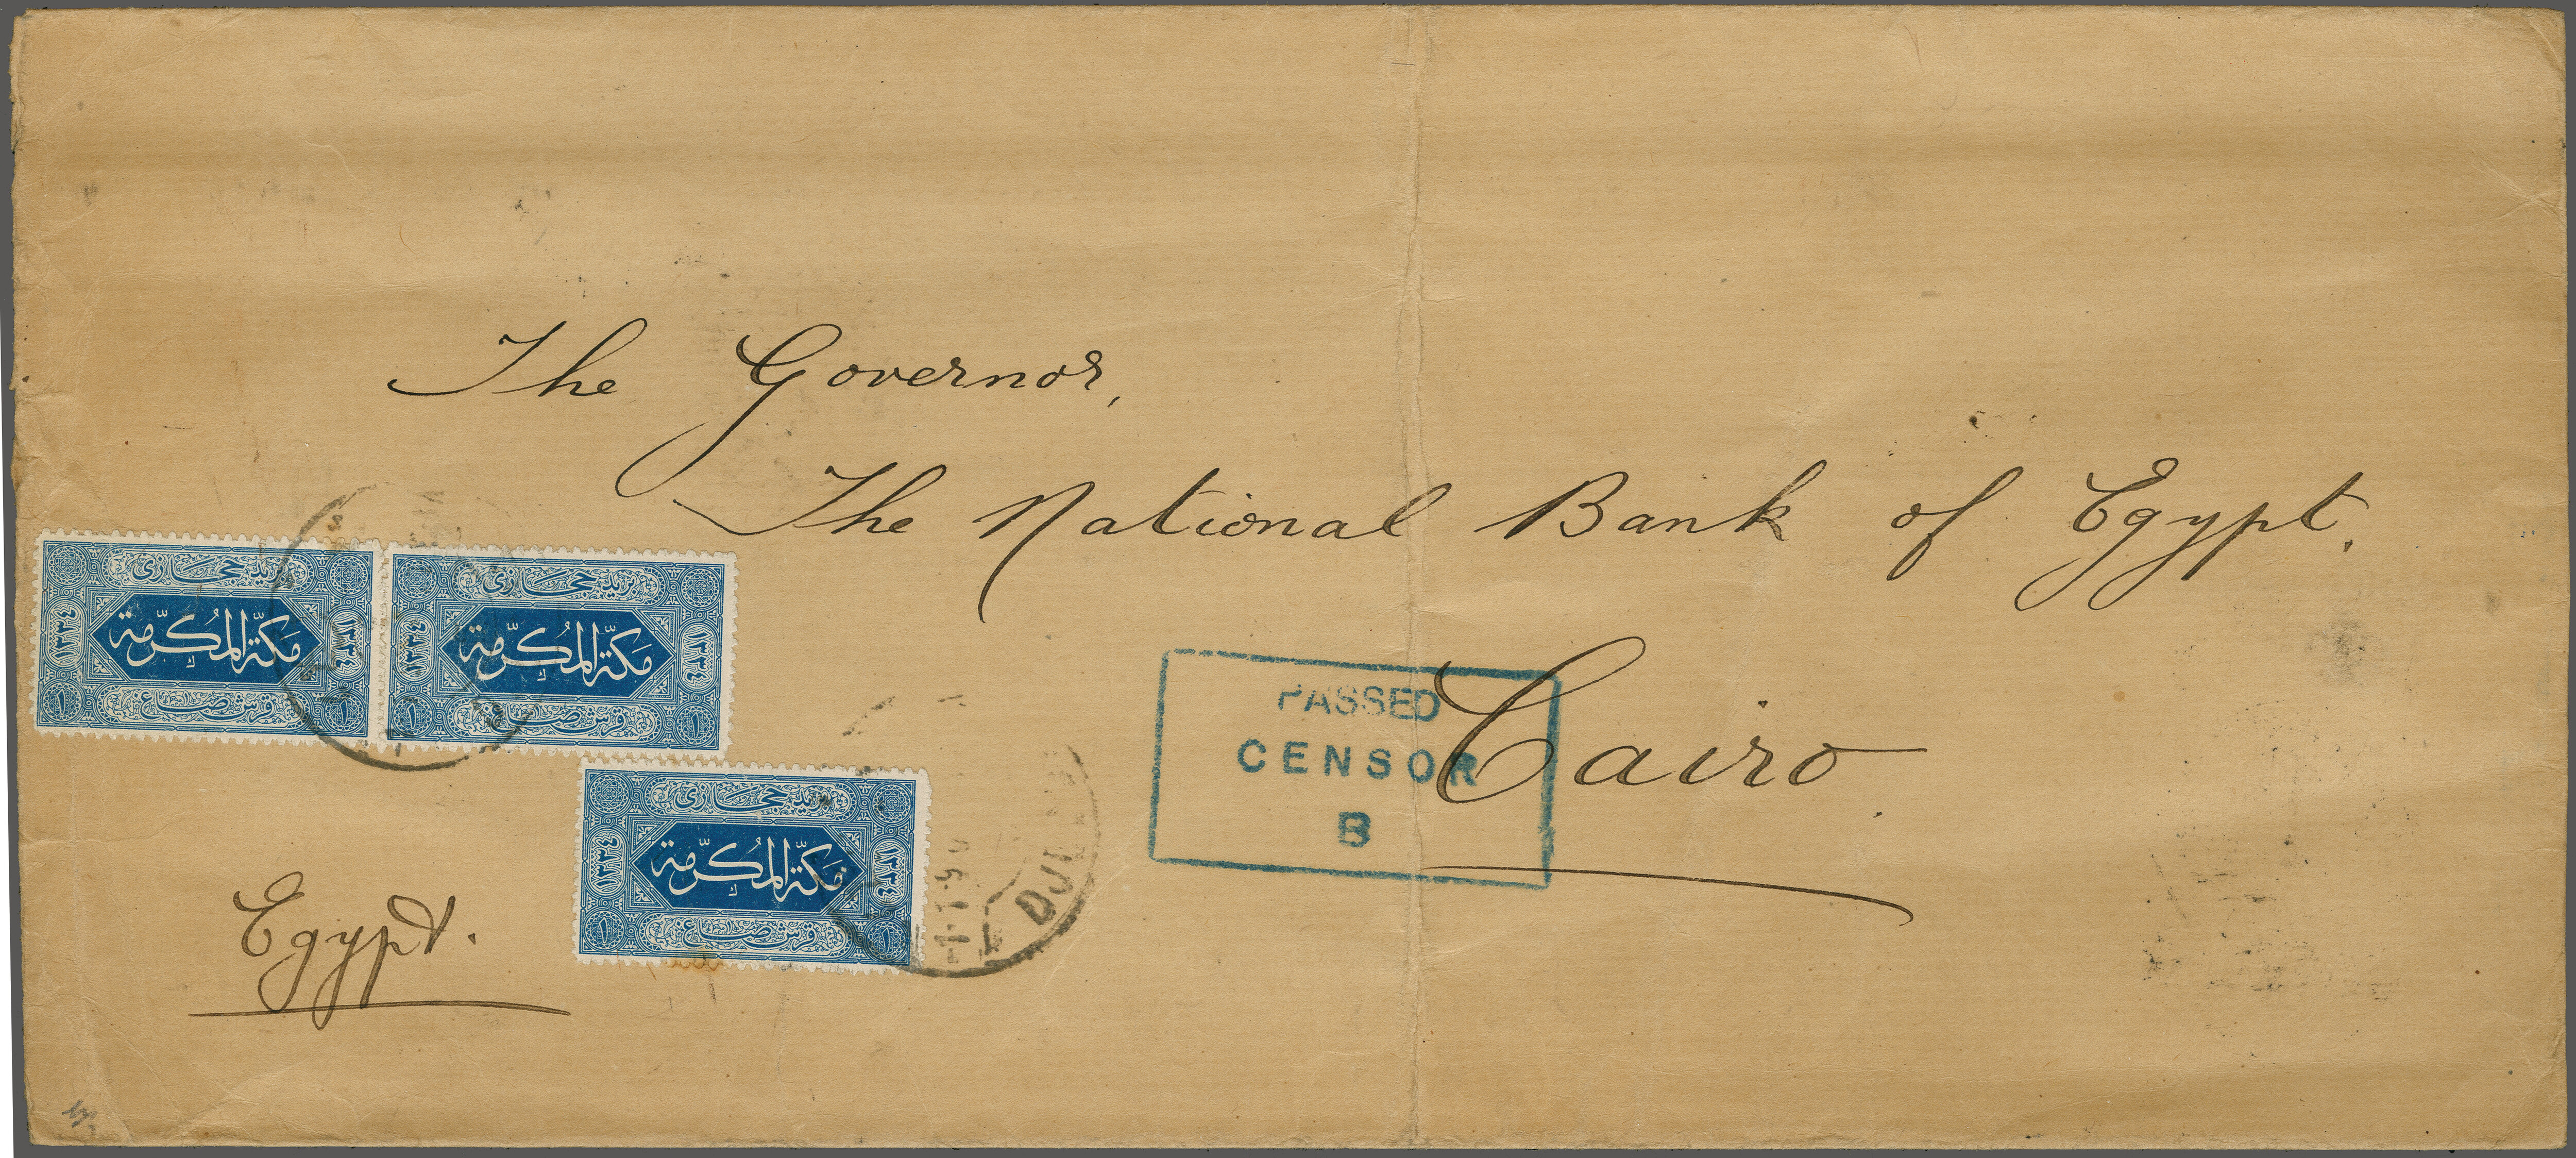 The Governor,
The National Bank of Egypt.
Cairo.
Egypt.
PASSED
CENSOR
B
بريد حجازى
١٣٣٤ مكة المكرمة ١٣٣٤
١ قرش صاغ ١
بريد حجازى
١٣٣٤ مكة المكرمة ١٣٣٤
١ قرش صاغ ١
بريد حجازى
١٣٣٤ مكة المكرمة ١٣٣٤
١ قرش صاغ ١